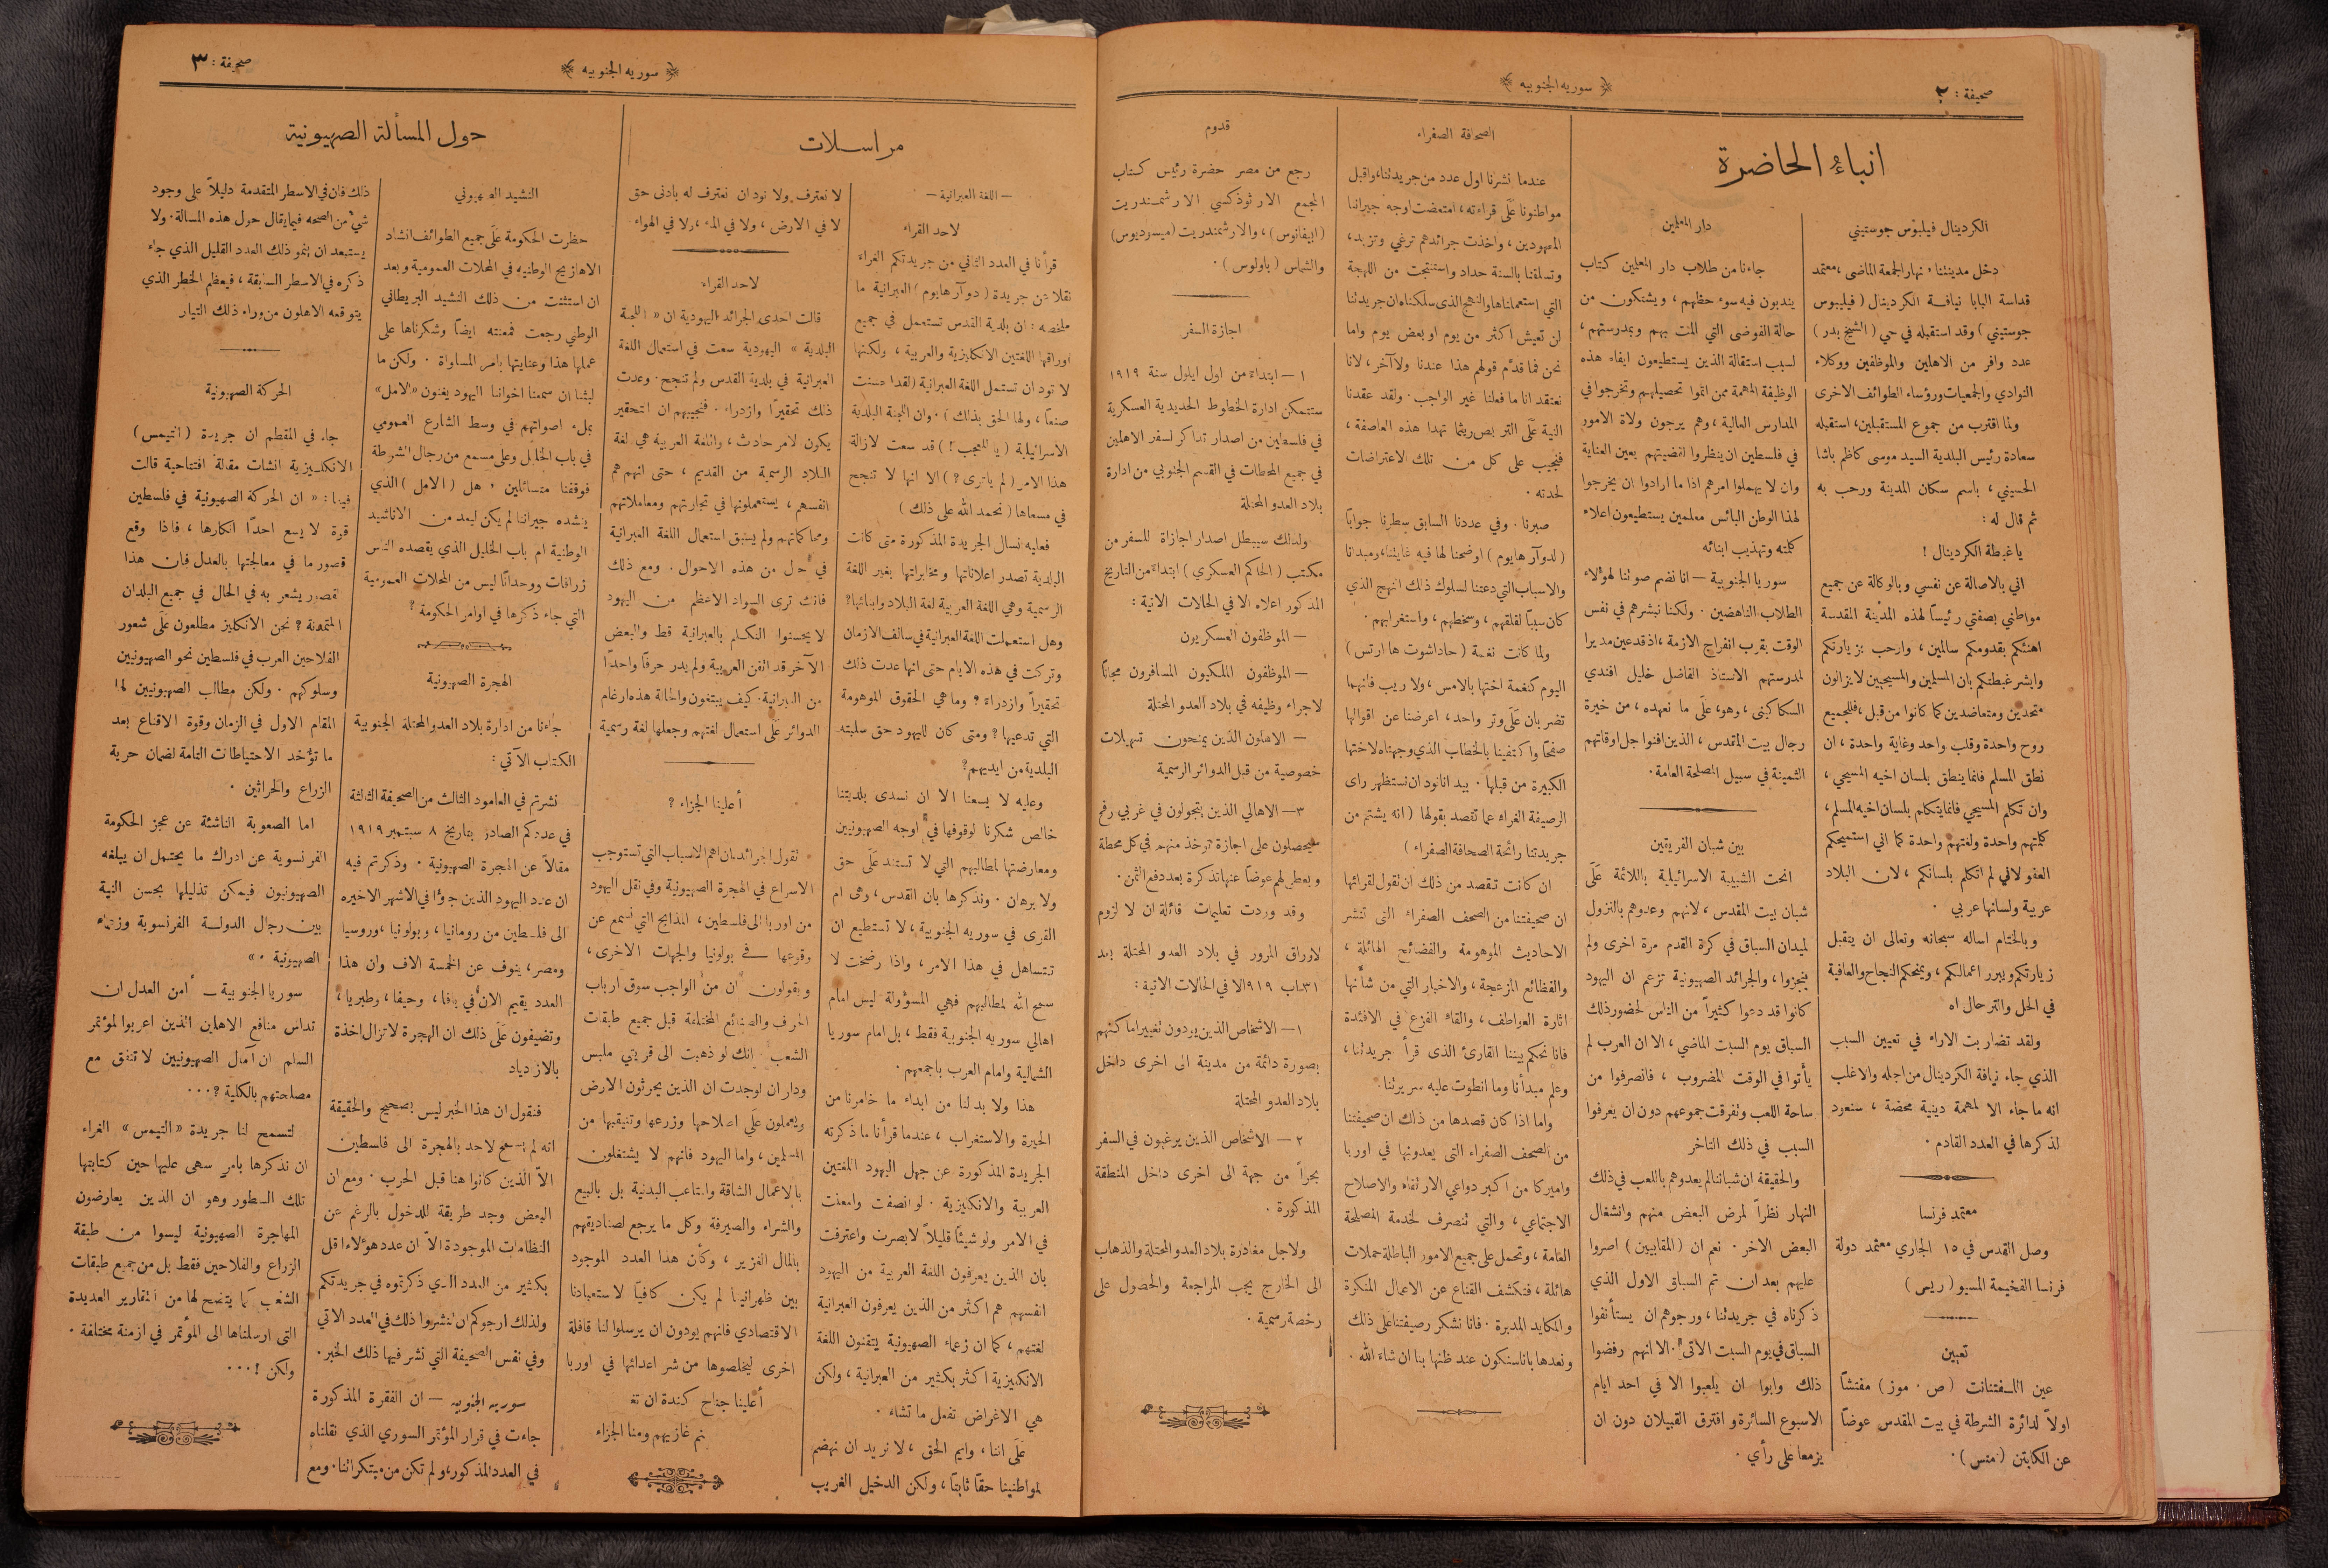 صحيفة : ٢
﴿ سوريه الجنوبيه ﴾
انباء الحاضرة
الكردينال فيلبوس جوستيني
دخل مدينتنا ، نهار الجمعة الماضي ، معتمد
قداسة البابا نيافة الكردينال ( فيليبوس
جوستيني ) وقد استقبله في حي ( الشيخ بدر )
عدد وافر من الاهلين والموظفين ووكلاء
النوادي والجمعيات ورؤساء الطوائف الاخرى
ولما اقترب من جموع المستقبلين ، استقبله
سعادة رئيس البلدية السيد موسى كاظم باشا
الحسيني ، باسم سكان المدينة ورحب به
ثم قال له :
يا غبطة الكردينال !
اني بالاصالة عن نفسي وبالوكالة عن جميع
مواطني بصفتي رئيسًا لهذه المدينة المقدسة
اهنئكم بقدومكم سالمين ، وارحب بزيارتكم
وابشر غبطتكم بان المسلمين والمسيحيين لا يزالون
متحدين ومتعاضدين كما كانوا من قبل ، فللجميع
روح واحدة وقلب واحد وغاية واحدة ، ان
نطق المسلم فانما ينطق بلسان اخيه المسيحي ،
وان تكلم المسيحي فانما يتكلم بلسان اخيه المسلم ،
كلمتهم واحدة ولغتهم واحدة كما اني استميحكم
العفو لاني لم اتكلم بلسانكم ، لان البلاد
عربية ولسانها عربي .
وبالختام اساله سبحانه وتعالى ان يتقبل
زيارتكم ويبرر اعمالكم ، ويمنحكم النجاح والعافية
في الحل والترحال اه
ولقد تضاربت الاراء في تعيين السبب
الذي جاء نيافة الكردينال من اجله والاغلب
انه ما جاء الا لمهمة دينية محضة ، سنعود
لذكرها في العدد القادم .
معتمد فرنسا
وصل القدس في ١٥ الجاري معتمد دولة
فرنسا الفخيمة المسيو ( ريس )
تعيين
عين اللفتنانت ( ص . موز ) مفتشًا
اولاً لدائرة الشرطة في بيت المقدس عوضًا
عن الكابتن ( متس ) .
دار المعلمين
جاءنا من طلاب دار المعلمين كتاب
يندبون فيه سوء حظهم ، ويشتكون من
حالة الفوضى التي المت بهم وبمدرستهم ،
لسبب استقالة الذين يستطيعون ايفاء هذه
الوظيفة المهمة ممن اتموا تحصيلهم وتخرجوا في
المدارس العالية ، وهم يرجون ولاة الامور
في فلسطين ان ينظروا لقضيتهم بعين العناية
وان لا يهملوا امرهم اذا ما ارادوا ان يخرجوا
لهذا الوطن البائس معلمين يستطيعون اعلاء
كلمته وتهذيب ابنائه
سوريا الجنوبية — انا نضم صوتنا لهؤلاء
الطلاب الناهضين . ولكننا نبشرهم في نفس
الوقت بقرب انفراج الازمة ، اذ قد عين مديرا
لمدرستهم الاستاذ الفاضل خليل افندي
السكاكيني ، وهو ، على ما نعهده ، من خيرة
رجال بيت المقدس ، الذين افنوا جل اوقاتهم
الثمينة في سبيل المصلحة العامة .
بين شبان الفريقين
انحت الشبيبة الاسرائيلية باللائمة على
شبان بيت المقدس ، لانهم وعدوهم بالنزول
لميدان السباق في كرة القدم مرة اخرى ولم
ينجزوا ، والجرائد الصهيونية تزعم ان اليهود
كانوا قد دعوا كثيراً من الناس لحضور ذلك
السباق يوم السبت الماضي ، الا ان العرب لم
يأتوا في الوقت المضروب ، فانصرفوا من
ساحة اللعب وتفرقت جموعهم دون ان يعرفوا
السبب في ذلك التاخر
والحقيقة ان شباننا لم يعدوهم باللعب في ذلك
النهار نظراً لمرض البعض منهم وانشغال
البعض الاخر . نعم ان ( المقابيين ) اصروا
عليهم بعد ان تم السباق الاول الذي
ذكرناه في جريدتنا ، ورجوهم ان يستأنفوا
السباق في يوم السبت الآتي . الا انهم رفضوا
ذلك وابوا ان يلعبوا الا في احد ايام
الاسبوع السائرة وافترق القبيلان دون ان
يزمعا على رأي .
الصحافة الصفراء
عندما نشرنا اول عدد من جريدتنا ، واقبل
مواطنونا على قراءته ، امتعضت اوجه جيراننا
المعهودين ، واخذت جرائدهم ترغي وتزبد ،
وتسلقنا بالسنة حداد واستنتجت من اللهجة
التي استعملناها والنهج الذي سلكناه ان جريدتنا
لن تعيش اكثر من يوم او بعض يوم واما
نحن فما قدّم قولهم هذا عندنا ولا آخر ، لاننا
نعتقد اننا ما فعلنا غير الواجب . ولقد عقدنا
النية على التربص ريثما تهدا هذه العاصفة ،
فنجيب على كل من تلك الاعتراضات
لحدته .
صبرنا . وفي عددنا السابق سطرنا جوابًا
( لدوآر هايوم ) اوضحنا لها فيه غايتنا ، ومبدانا
والاسباب التي دعتنا لسلوك ذلك النهج الذي
كان سببًا لقلقهم ، وسخطهم ، واستغرابهم .
ولما كانت نغمة ( حاداشوت ها ارتس )
اليوم كنغمة اختها بالامس ، ولا ريب فانهما
تضربان على وتر واحد ، اعرضنا عن اقوالها
صفحًا واكتفينا بالخطاب الذي وجهناه لاختها
الكبيرة من قبلها . بيد اننا نود ان نستظهر راى
الرصيفة الغراء عما تقصد بقولها ( انه يشتم من
جريدتنا رائحة الصحافة الصفراء )
ان كانت تقصد من ذلك ان تقول لقرائها
ان صحيفتنا من الصحف الصفراء التي تنشر
الاحاديث الموهومة والفضائح الهائلة ،
والفظائع المزعجة ، والاخبار التي من شأنها
اثارة العواطف ، والقاء الفزع في الافئدة
فانا نحكم بيننا القارئ الذي قرأ جريدتنا ،
وعلم مبدأنا وما انطوت عليه سريرتنا .
واما اذا كان قصدها من ذلك ان صحيفتنا
من الصحف الصفراء التي يعدونها في اوربا
واميركا من اكبر دواعي الارتقاء والاصلاح
الاجتماعي ، والتي تنصرف لخدمة المصلحة
العامة ، وتحمل على جميع الامور الباطلة حملات
هائلة ، فتكشف القناع عن الاعمال المنكرة
والمكايد المدبرة . فانا نشكر رصيفتنا على ذلك
ونعدها باننا سنكون عند ظنها بنا ان شاء الله .
قدوم
رجع من مصر حضرة رئيس كتاب
المجمع الارثوذكسي الارشمندريت
( ابيفانوس ) ، والارشمندريت ( ميسرديوس )
والشماس ( باولوس ) .
اجازة السفر
١ — ابتداء من اول ايلول سنة ١٩١٩
ستتمكن ادارة الخطوط الحديدية العسكرية
في فلسطين من اصدار تذاكر لسفر الاهلين
في جميع المحطات في القسم الجنوبي من ادارة
بلاد العدو المحتلة
ولذلك سيبطل اصدار اجازة للسفر من
مكتب ( الحاكم العسكري ) ابتداء من التاريخ
المذكور اعلاه الا في الحالات الاتية :
— الموظفون العسكريون
— الموظفون الملكيون المسافرون مجانًا
لاجراء وظيفه في بلاد العدو المحتلة
— الاهلون الذين يمنحون تسهيلات
خصوصية من قبل الدوائر الرسمية
٣ — الاهالي الذين يتجولون في غربي رفح
سيحصلون على اجازة تؤخذ منهم في كل محطة
ويعطى لهم عوضًا عنها تذكرة بعد دفع الثمن .
وقد وردت تعليمات قائلة ان لا لزوم
لاوراق المرور في بلاد العدو المحتلة بعد
٣١ اب ٩١٩ الا في الحالات الاتية :
١ — الاشخاص الذين يريدون تغيير اماكنهم
بصورة دائمة من مدينة الى اخرى داخل
بلاد العدو المحتلة
٢ — الاشخاص الذين يرغبون في السفر
بحراً من جهة الى اخرى داخل المنطقة
المذكورة .
ولاجل مغادرة بلاد العدو المحتلة والذهاب
الى الخارج يجب المراجعة والحصول على
رخصة رسمية .
﴿ سوريه الجنوبيه ﴾
صحيفة : ٣
مراسلات
— اللغة العبرانية —
لاحد القراء
قرأنا في العدد الثاني من جريدتكم الغراء
نقلا عن جريدة ( دوآر هايوم ) العبرانية ما
ملخصه : ان بلدية القدس تستعمل في جميع
اوراقها اللغتين الانكليزية والعربية ، ولكنها
لا تود ان تستعمل اللغة العبرانية ( لقد احسنت
صنعًا ، ولها الحق بذلك ) . وان اللجنة البلدية
الاسرائيلية ( يا للعجب ! ) قد سعت لازالة
هذا الامر ( لم يا ترى ؟ ) الا انها لا تنجح
في مسعاها ( نحمد الله على ذلك )
فعليه نسال الجريدة المذكورة متى كانت
البلدية تصدر اعلاناتها ومخابراتها بغير اللغة
الرسمية وهي اللغة العربية لغة البلاد وابنائها ؟
وهل استعملت اللغة العبرانية في سالف الازمان
وتركت في هذه الايام حتى انها عدت ذلك
تحقيراً وازدراء ؟ وما هي الحقوق الموهومة
التي تدعيها ؟ ومتى كان لليهود حق سلبته
البلدية من ايديهم ؟
وعليه لا يسعنا الا ان نسدى بلديتنا
خالص شكرنا لوقوفها في اوجه الصهيونيين
ومعارضتها لمطاليبهم التي لا تستند على حق
ولا برهان . ونذكرها بان القدس ، وهي ام
القرى في سوريه الجنوبية ، لا تستطيع ان
تتساهل في هذا الامر ، واذا رضخت لا
سمح الله لمطاليبهم فهي المسؤولة ليس امام
اهالي سوريه الجنوبية فقط ، بل امام سوريا
الشمالية وامام العرب باجمعهم .
هذا ولا بد لنا من ابداء ما خامرنا من
الحيرة والاستغراب ، عندما قرأنا ما ذكرته
الجريدة المذكورة عن جهل اليهود اللغتين
العربية والانكليزية . لو انصفت وامعنت
في الامر ولو شيئًا قليلاً لابصرت واعترفت
بان الذين يعرفون اللغة العربية من اليهود
انفسهم هم اكثر من الذين يعرفون العبرانية
لغتهم ، كما ان زعماء الصهيونية يتقنون اللغة
الانكليزية اكثر بكثير من العبرانية ، ولكن
هي الاغراض تفعل ما تشاء .
على اننا ، وايم الحق ، لا نريد ان نهضم
لمواطنينا حقًا ثابتًا ، ولكن الدخيل الغريب
لا نعترف ولا نود ان نعترف له بادنى حق
لا في الارض ، ولا في الماء ، ولا في الهواء
لاحد القراء
قالت احدى الجرائد اليهودية ان « اللجنة
البلدية » اليهودية سعت في استعمال اللغة
العبرانية في بلدية القدس ولم تنجح . وعدت
ذلك تحقيراً وازدراء . فنجيبهم ان التحقير
يكون لامر حادث ، واللغة العربية هي لغة
البلاد الرسمية من القديم ، حتى انهم هم
انفسهم ، يستعملونها في تجارتهم ومعاملاتهم
ومحاكماتهم ولم يسبق استعمال اللغة العبرانية
في حال من هذه الاحوال . ومع ذلك
فانك ترى السواد الاعظم من اليهود
لا يحسنوا التكلم بالعبرانية قط والبعض
الآخر قد اتقن العربية ولم يدر حرفًا واحدًا
من العبرانية . كيف يبتغون والحالة هذه ارغام
الدوائر على استعمال لغتهم وجعلها لغة رسمية
أعلينا الجزاء ؟
تقول الجرائد بان اهم الاسباب التي تستوجب
الاسراع في الهجرة الصهيونية وفي نقل اليهود
من اوربا الى فلسطين ، المذابح التي نسمع عن
وقوعها في بولونيا والجهات الاخرى ،
ويقولون ان من الواجب سوق ارباب
الحرف والصنائع المختلفة قبل جميع طبقات
الشعب انك لو ذهبت الى قريتي ملبس
وداران لوجدت ان الذين يحرثون الارض
ويعملون على اصلاحها وزرعها وتنيقبها من
المسلمين ، واما اليهود فانهم لا يشتغلون
بالاعمال الشاقة والمتاعب البدنية بل بالبيع
والشراء والصيرفة وكل ما يرجع لصناديقهم
بالمال الغزير ، وكأن هذا العدد الموجود
بين ظهرانينا لم يكن كافيًا لاستعبادنا
الاقتصادي فانهم يودون ان يرسلوا لنا قافلة
اخرى ليخلصوها من شر اعدائها في اوربا
أعلينا جناح كندة ان تغـ
ـنم غازيهم ومنا الجزاء
حول المسألة الصهيونية
النشيد الصهيوني
حظرت الحكومة على جميع الطوائف انشاد
الاهازيج الوطنية في المحلات العمومية وبعد
ان استثنت من ذلك النشيد البريطاني
الوطني رجعت فمنعته ايضًا وشكرناها على
عملها هذا وعنايتها بامر المساواة . ولكن ما
لبثنا ان سمعنا اخواننا اليهود يغنون « الامل »
بملء اصواتهم في وسط الشارع العمومي
في باب الخليل وعلى مسمع من رجال الشرطة
فوقفنا متسائلين ، هل ( الامل ) الذي
ينشده جيراننا لم يكن ليعد من الاناشيد
الوطنية ام باب الخليل الذي يقصده الناس
زرافات ووحدانًا ليس من المحلات العمومية
التي جاء ذكرها في اوامر الحكومة ؟
الهجرة الصهيونية
جاءنا من ادارة بلاد العدو المحتلة الجنوبية
الكتاب الآتي :
نشرتم في العامود الثالث من الصحيفة الثالثة
في عددكم الصادر بتاريخ ٨ سبتمبر ١٩١٩
مقالاً عن الهجرة الصهيونية . وذكرتم فيه
ان عدد اليهود الذين جؤا في الاشهر الاخيره
الى فلسطين من رومانيا ، وبولونيا ، وروسيا
ومصر ، ينوف عن الخمسة الاف وان هذا
العدد يقيم الان في يافا ، وحيفا ، وطبريا ،
وتضيفون على ذلك ان الهجرة لا تزال اخذة
بالازدياد
فنقول ان هذا الخبر ليس بصحيح والحقيقة
انه لم يسمح لاحد بالهجرة الى فلسطين
الاّ الذين كانوا هنا قبل الحرب . ومع ان
البعض وجد طريقة للدخول بالرغم عن
النظامات الموجودة الاّ ان عدد هؤلاء اقل
بكثير من العدد الذي ذكرتموه في جريدتكم
ولذلك ارجوكم ان تنشروا ذلك في العدد الاتي
وفي نفس الصحيفة التي نشر فيها ذلك الخبر .
سوريه الجنوبيه — ان الفقرة المذكورة
جاءت في قرار المؤتمر السوري الذي نقلناه
في العدد المذكور ، ولم تكن من مبتكراتنا . ومع
ذلك فان في الاسطر المتقدمة دليلاً على وجود
شيء من الصحه فيما يقال حول هذه المسالة . ولا
يستبعد ان ينمو ذلك العدد القليل الذي جاء
ذكره في الاسطر السابقة ، فيعظم الخطر الذي
يتوقعه الاهلون من وراء ذلك التيار
الحركة الصهيونية
جاء في المقطم ان جريدة ( التيمس )
الانكليزية انشات مقالة افتتاحية قالت
فيها : « ان الحركة الصهيونية في فلسطين
قوة لا يسع احدًا انكارها ، فاذا وقع
قصور ما في معالجتها بالعدل فان هذا
القصور يشعر به في الحال في جميع البلدان
المتمدنة ؟ نحن الانكليز مطلعون على شعور
الفلاحين العرب في فلسطين نحو الصهيونيين
وسلوكهم . ولكن مطالب الصهيونيين لها
المقام الاول في الزمان وقوة الاقناع بعد
ما تؤخذ الاحتياطات التامة لضمان حرية
الزراع والحراثين .
اما الصعوبة الناشئة عن عجز الحكومة
الفرنسوية عن ادراك ما يحتمل ان يبلغه
الصهيونيون فيمكن تذليلها بحسن النية
بين رجال الدولة الفرنسوية وزعماء
الصهيونية . »
سوريا الجنوبية — أمن العدل ان
تداس منافع الاهلين الذين اعربوا لمؤتمر
السلم ان آمال الصهيونيين لا تتفق مع
مصلحتهم بالكلية ؟ . . .
لتسمح لنا جريدة « التيمس » الغراء
ان نذكرها بامر سهى عليها حين كتابتها
تلك السطور وهو ان الذين يعارضون
المهاجرة الصهيونية ليسوا من طبقة
الزراع والفلاحين فقط بل من جميع طبقات
الشعب كما يتضح لها من التقارير العديدة
التي ارسلناها الى المؤتمر في ازمنة مختلفة .
ولكن ! . . .